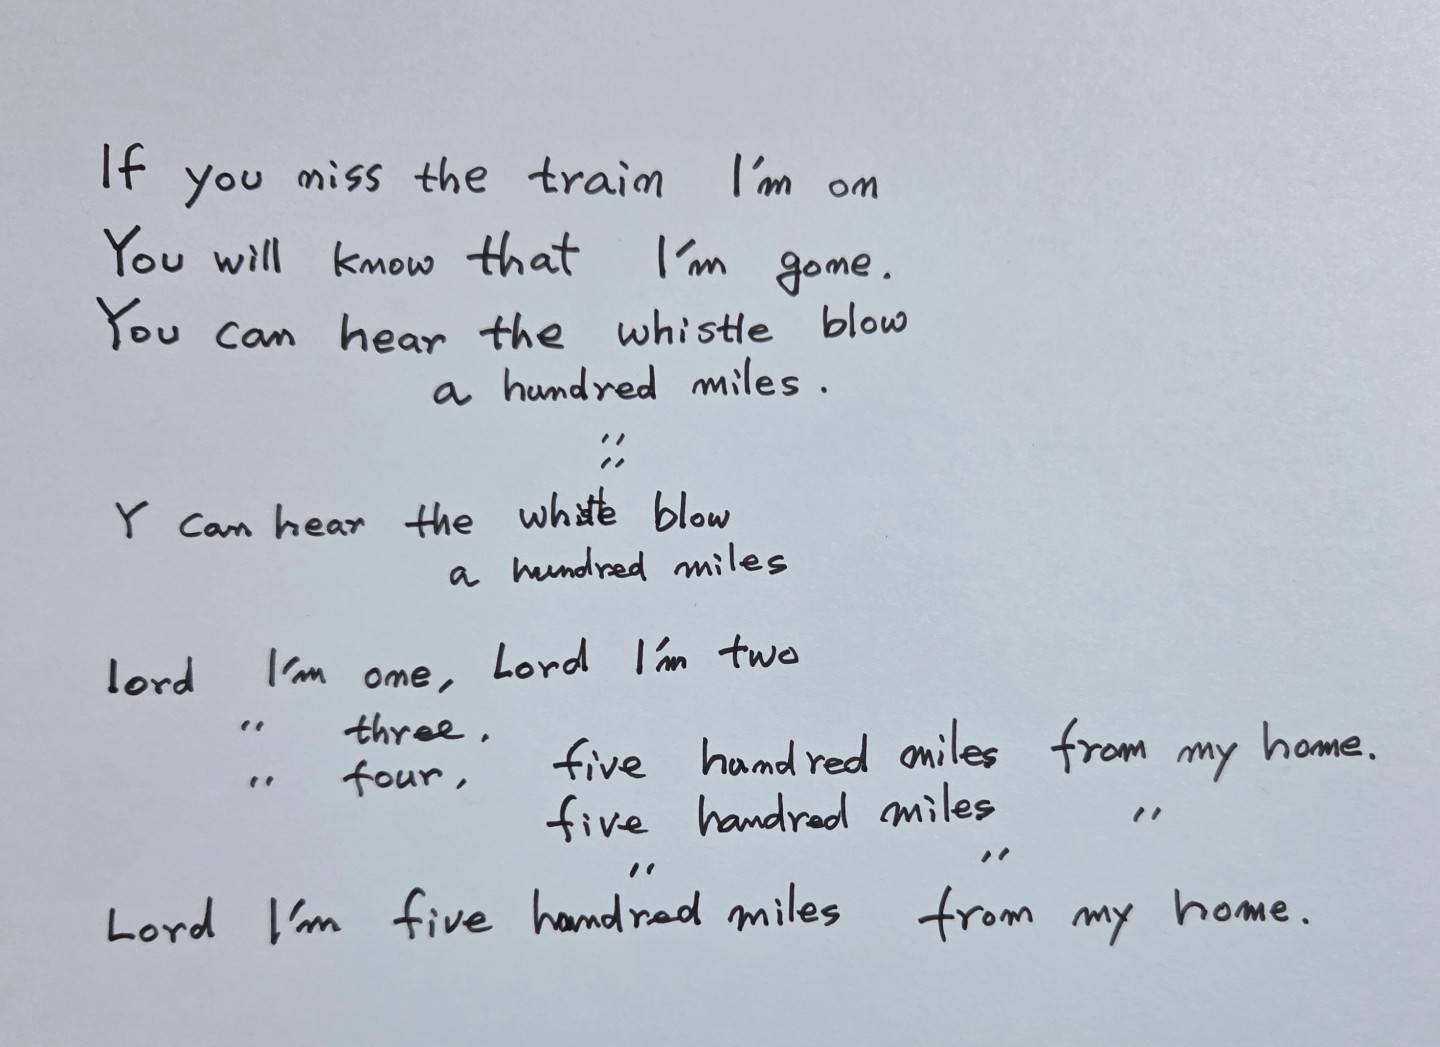 If you miss the train I'm on
You will know that I'm gone.
You can hear the whistle blow
a hundred miles.
〃
〃
Y can hear the whistle blow
a hundred miles
lord I'm one, Lord I'm two
〃 three.
〃 four, five hundred miles from my home.
five hundred miles 〃
〃 〃
Lord I'm five hundred miles from my home.